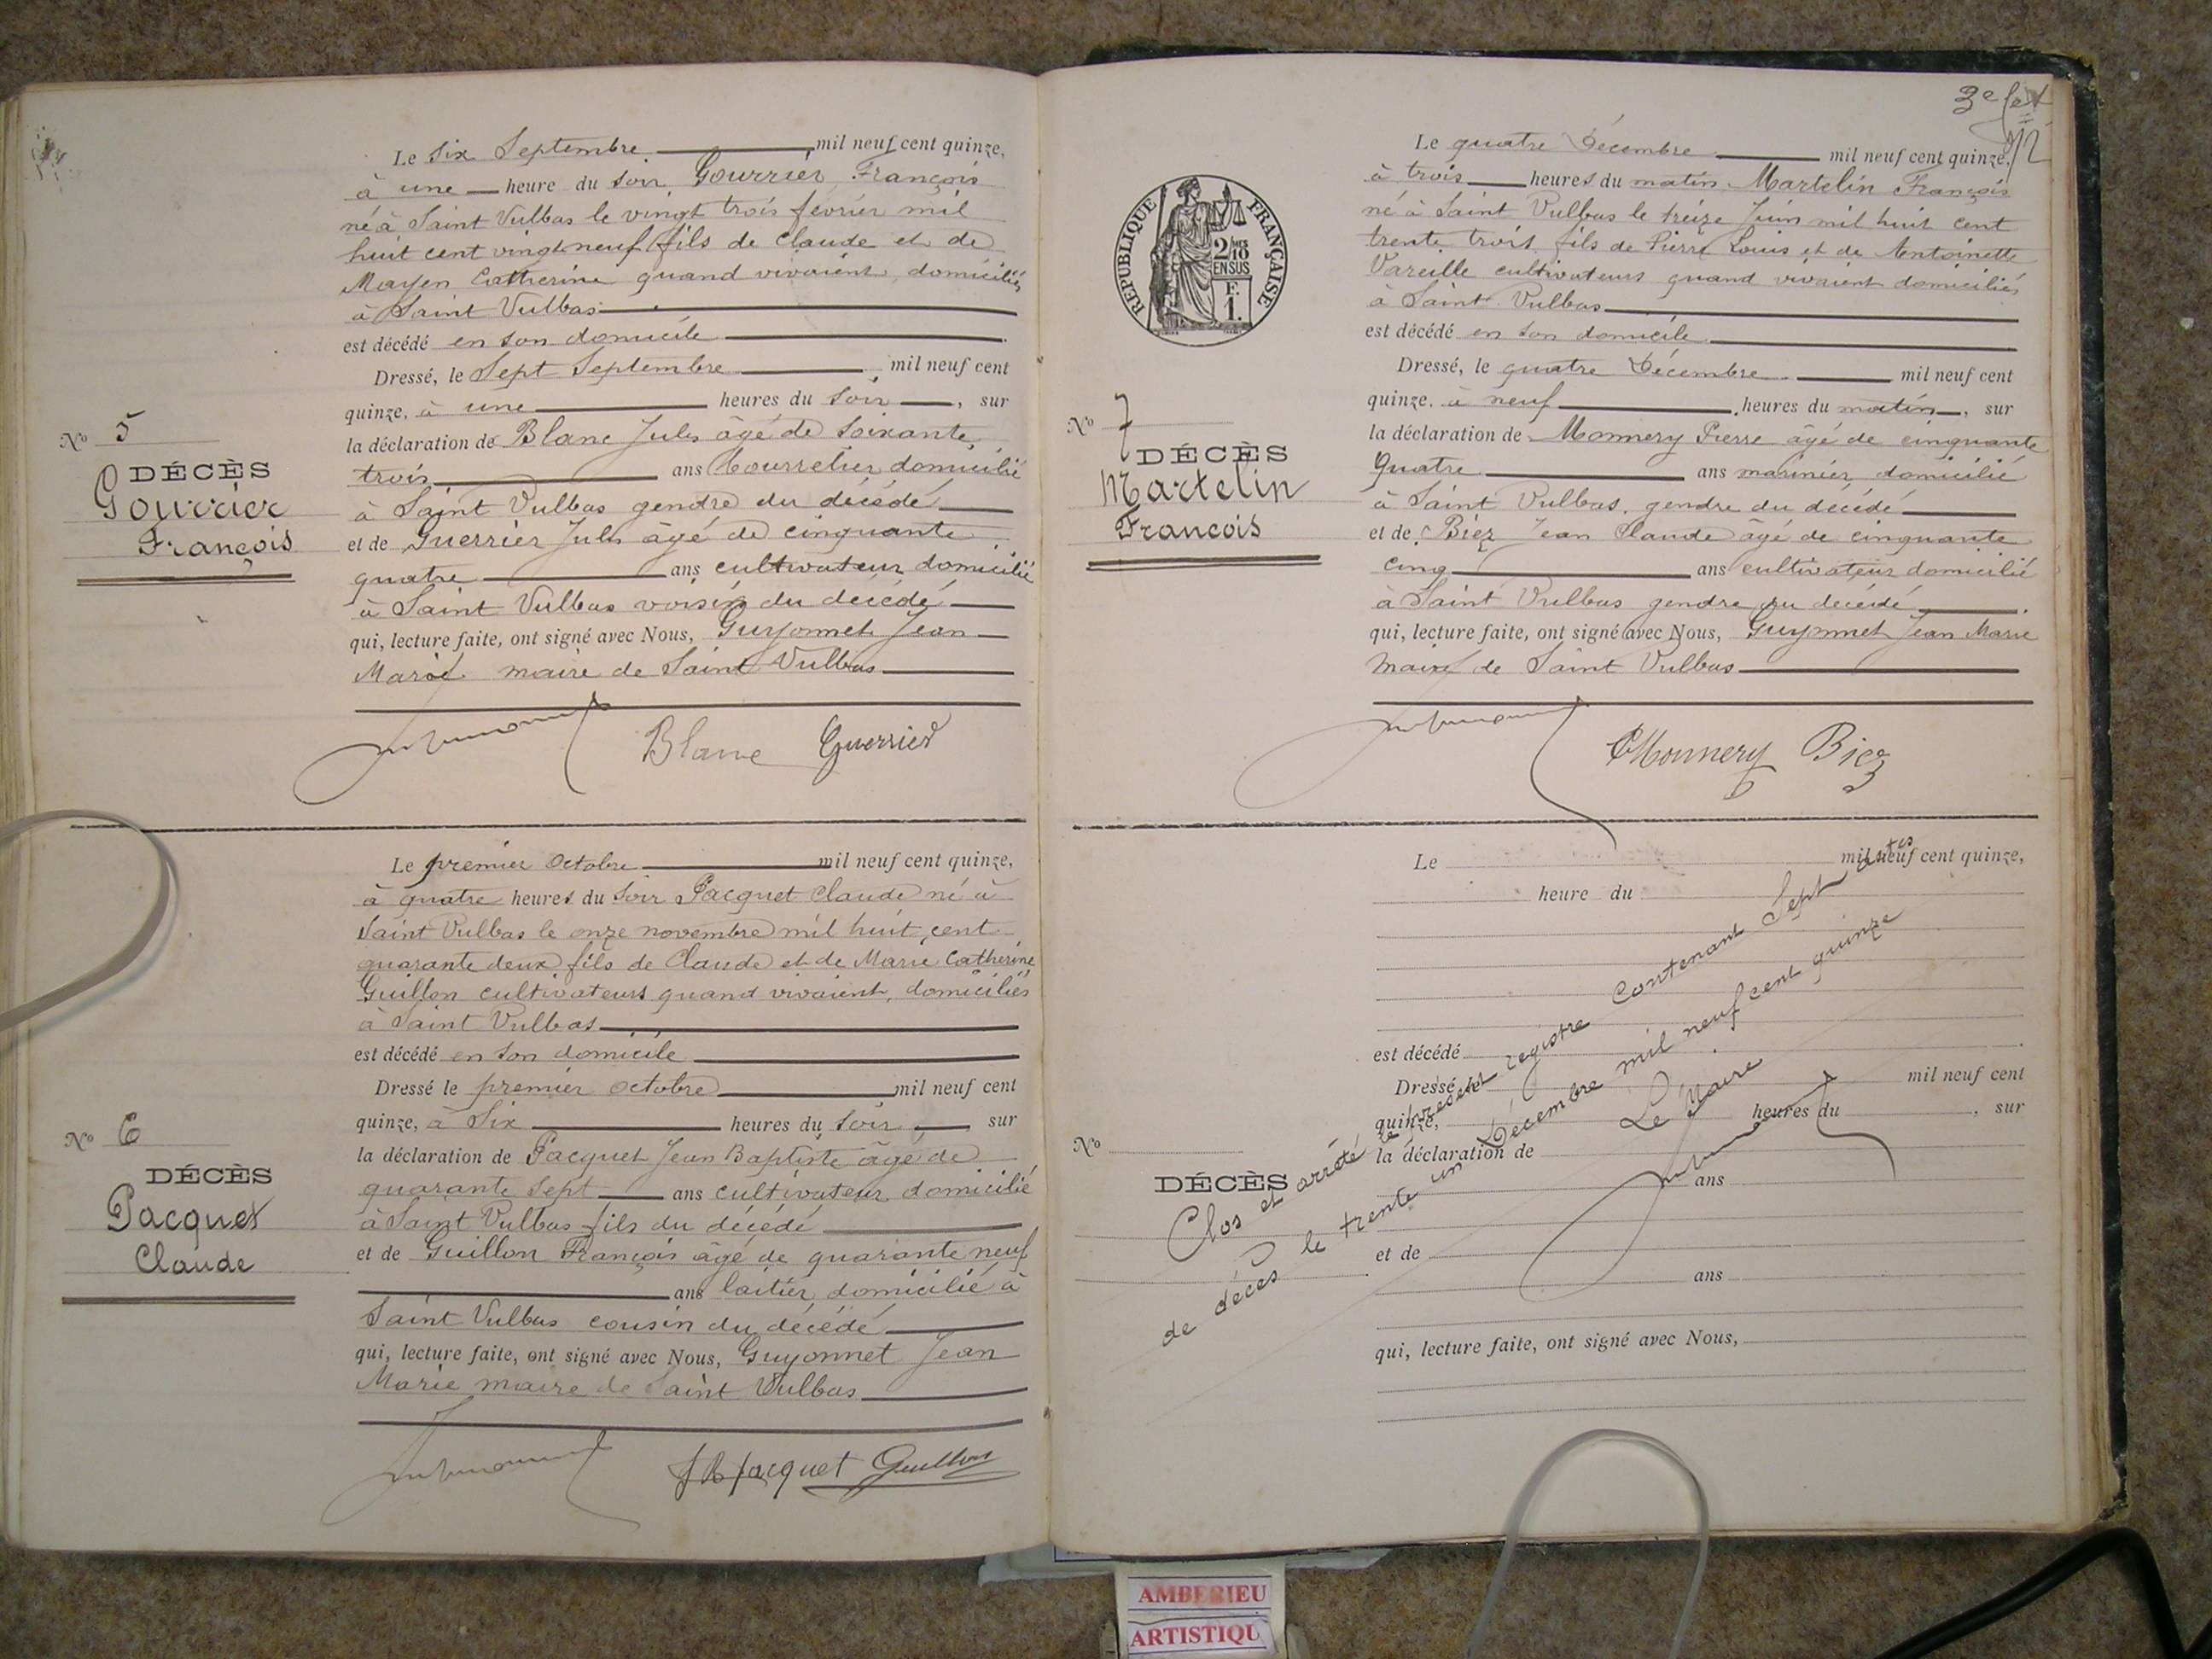 Le six Septembre mil neuf cent quinze,
à une heure du soir, Gourrier François
né à Saint Vulbas le vingt trois février mil
huit cent vingt neuf fils de Claude et de
Mayen Catherine quand vivaient domiciliés
à Saint Vulbas
est décédé en son domicile
Dressé, le Sept Septembre mil neuf cent
quinze, à une heures du soir, sur
la déclaration de Blanc Jules âgé de soixante
trois ans bourrelier domicilié
à Saint Vulbas gendre du décédé
et de Guerrier Jules âgé de cinquante
quatre ans cultivateur domicilié
à Saint Vulbas voisin du décédé
qui, lecture faite, ont signé avec Nous, Guyonnet Jean
Marie maire de Saint Vulbas
Blanc Guerrier
No 5
DÉCÈS
Gourrier
François
Le premier Octobre mil neuf cent quinze,
à quatre heures du soir Pacquet Claude né à
Saint Vulbas le onze novembre mil huit cent
quarante deux fils de Claude et de Marie Catherine
Guillon cultivateurs quand vivaient, domiciliés
à Saint Vulbas
est décédé en son domicile
Dressé le premier octobre mil neuf cent
quinze, à Six heures du soir sur
la déclaration de Pacquet Jean Baptiste âgé de
quarante sept ans cultivateur domicilié
à Saint Vulbas fils du décédé
et de Guillon François âgé de quarante neuf
ans laitier domicilié à
Saint Vulbas cousin du décédé
qui, lecture faite, ont signé avec Nous, Guyonnet Jean
Marie maire de Saint Vulbas
Pacquet Guillon
No 6
DÉCÈS
Pacquet
Claude
3e
RÉPUBLIQUE FRANÇAISE
2/10 EN SUS
F. 1.
Le quatre Décembre mil neuf cent quinze,
à trois heures du matin Martelin François
né à Saint Vulbas le treize Juin mil huit cent
trente trois fils de Pierre Louis et de Antoinette
Vareille cultivateurs quand vivaient domiciliés
à Saint Vulbas
est décédé en son domicile
Dressé, le quatre Décembre mil neuf cent
quinze, à neuf heures du matin, sur
la déclaration de Monnery Pierre âgé de cinquante
quatre ans marinier domicilié
à Saint Vulbas, gendre du décédé
et de Biez Jean Claude âgé de cinquante
cinq ans cultivateur domicilié
à Saint Vulbas gendre du décédé
qui, lecture faite, ont signé avec Nous, Guyonnet Jean Marie
maire de Saint Vulbas
Monnery Biez
No 7
DÉCÈS
Martelin
Francois
Le mil neuf cent quinze,
heure du
est décédé
Dressé, le mil neuf cent
quinze, heures du , sur
la déclaration de
ans
et de
ans
qui, lecture faite, ont signé avec Nous,
No
DÉCÈS
Clos et arrêté le présent registre contenant Sept actes
de décès le trente un Décembre mil neuf cent quinze
Le Maire
AMBERIEU
ARTISTIQU